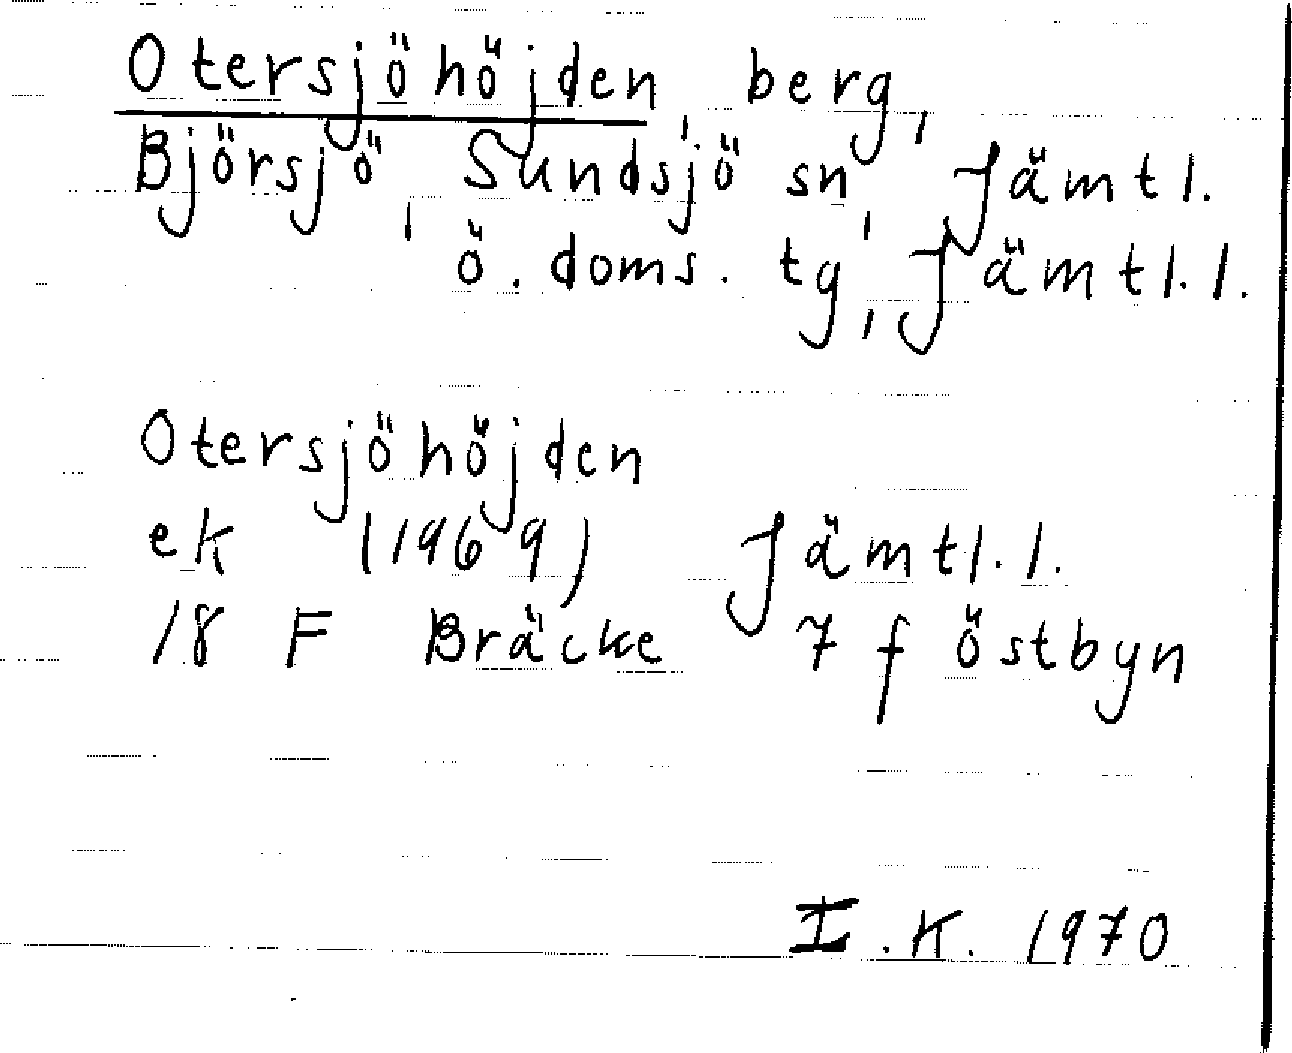 Otersjöhöjden, berg,
Björsjö, Sundsjö sn, Jämtl.
ö. doms. tg, Jämtl. l.
Otersjöhöjden
ek (1969) Jämtl. l.
18 F Bräcke 7 f östbyn
I. K. 1970